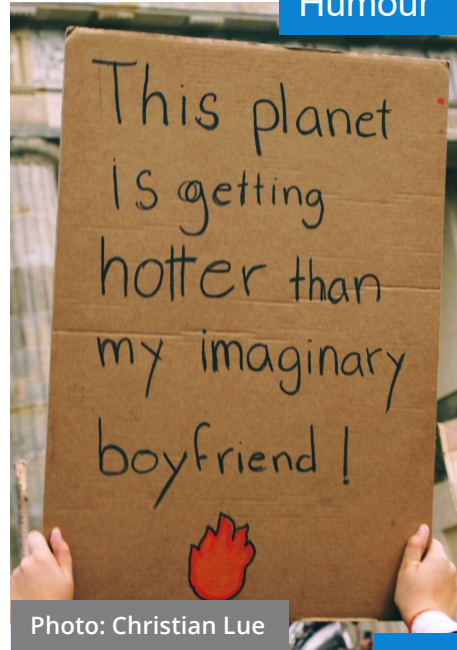 Humour
This planet
is getting
hotter than
my imaginary
boyfriend!
Photo: Christian Lue